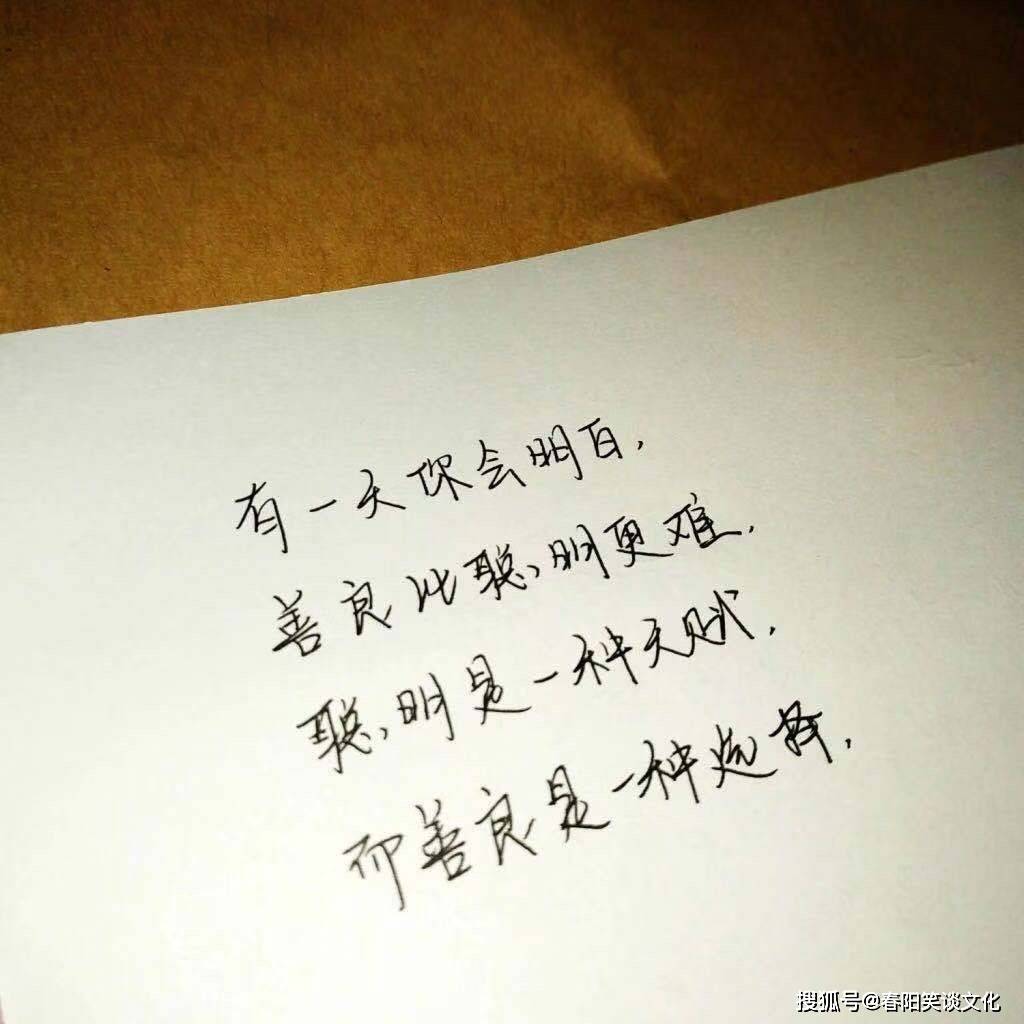 有一天你会明白,
善良比聪明更难.
聪明是一种天赋,
而善良是一种选择.
搜狐号@春阳笑谈文化